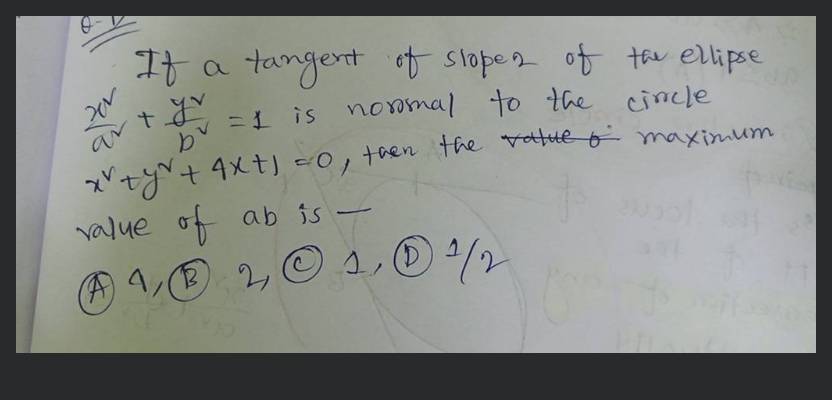 Q-1)
If a tangent of slope 2 of the ellipse
x²/a² + y²/b² = 1 is normal to the circle
x² + y² + 4x + 1 = 0, then the value o maximum
value of ab is —
(A) 4, (B) 2, (C) 1, (D) 1/2